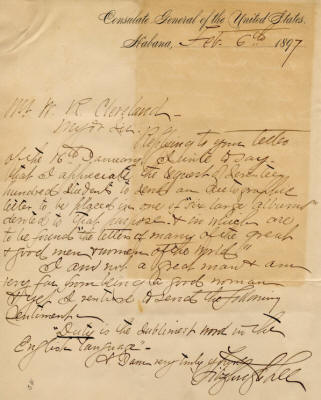 Consulate General of the United States.
Habana, Feb. 6th 1897
Mr. W. R. Cleveland
My dr Sir
Replying to your letter
of the 16th January I write to say
that I appreciate the request of seventeen
hundred students to send an autographic
letter to be placed in one of six large albums
devoted to that purpose & in which are
to be found "the letters of many of the great
& good men & women of the world"
I am not a great man & am
very far from being a good woman
& yet I venture to send the following
sentiment
"Duty is the sublimest word in the
English language"
I am very truly yours
Fitzhugh Lee